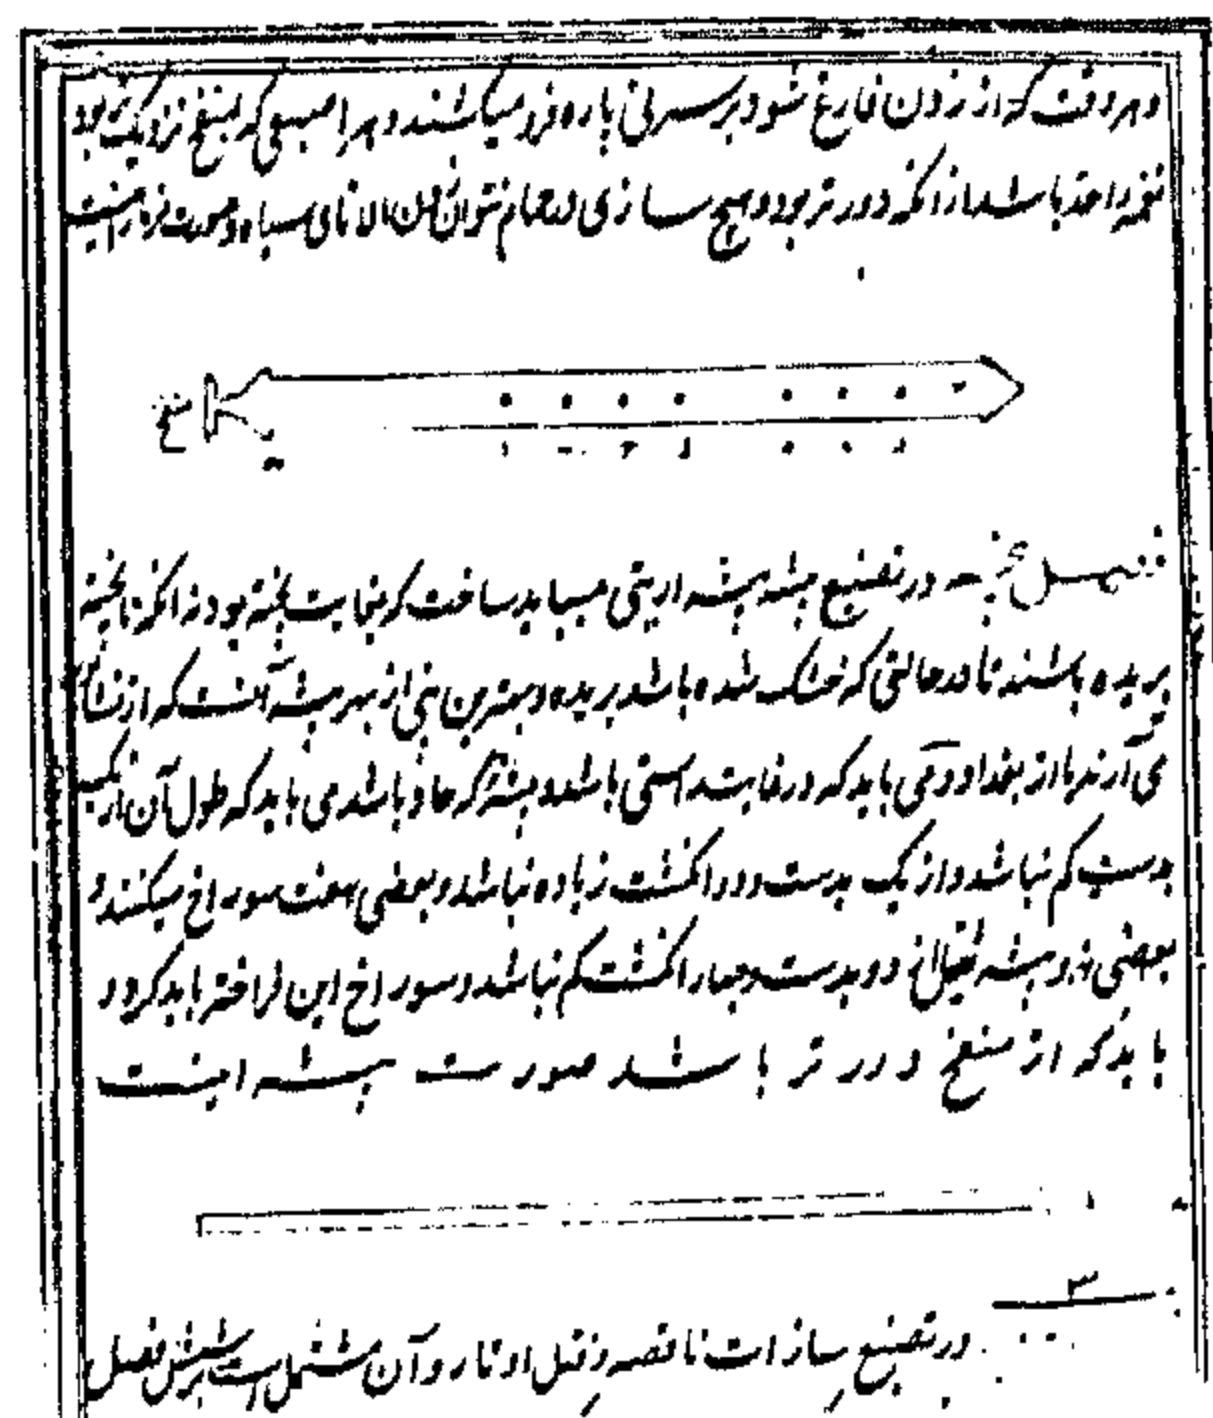 و هر وقت که از زدن فارغ شود بر سر نی پاره فرو میکشند و هر اصبعی که بمنفخ نزدیک بود
نغمه احد باشد از آنکه دورتر بود و هیچ سازی در حمام نتوان زدن الا نای سیاه و صورت نی اینست
منفخ
فصل در تصنیع بیشه بیشه از نئی میباید ساخت که بغایت پخته بود نه آنکه ناپخته
بریده باشند تا در حالتی که خشک شده باشد بریده و بهترین نی از بهر بیشه آنست که از
می آرند یا از بغداد و می باید که در غایت راستی باشد و بیشه که حاد باشد می باید که طول آن از یک
بدست کم نباشد و از یک بدست و دو انگشت زیاده نباشد و بعضی هفت سوراخ میکنند و
بعضی نه و بیشه ثقیل از دو بدست و چهار انگشت کم نباشد و سوراخ این فراختر باید کرد و
باید که از منفخ دورتر باشد صورت بیشه اینست
در تصنیع سازات ناقصه و نقل اوتار و آن مشتمل است بر شش فصل